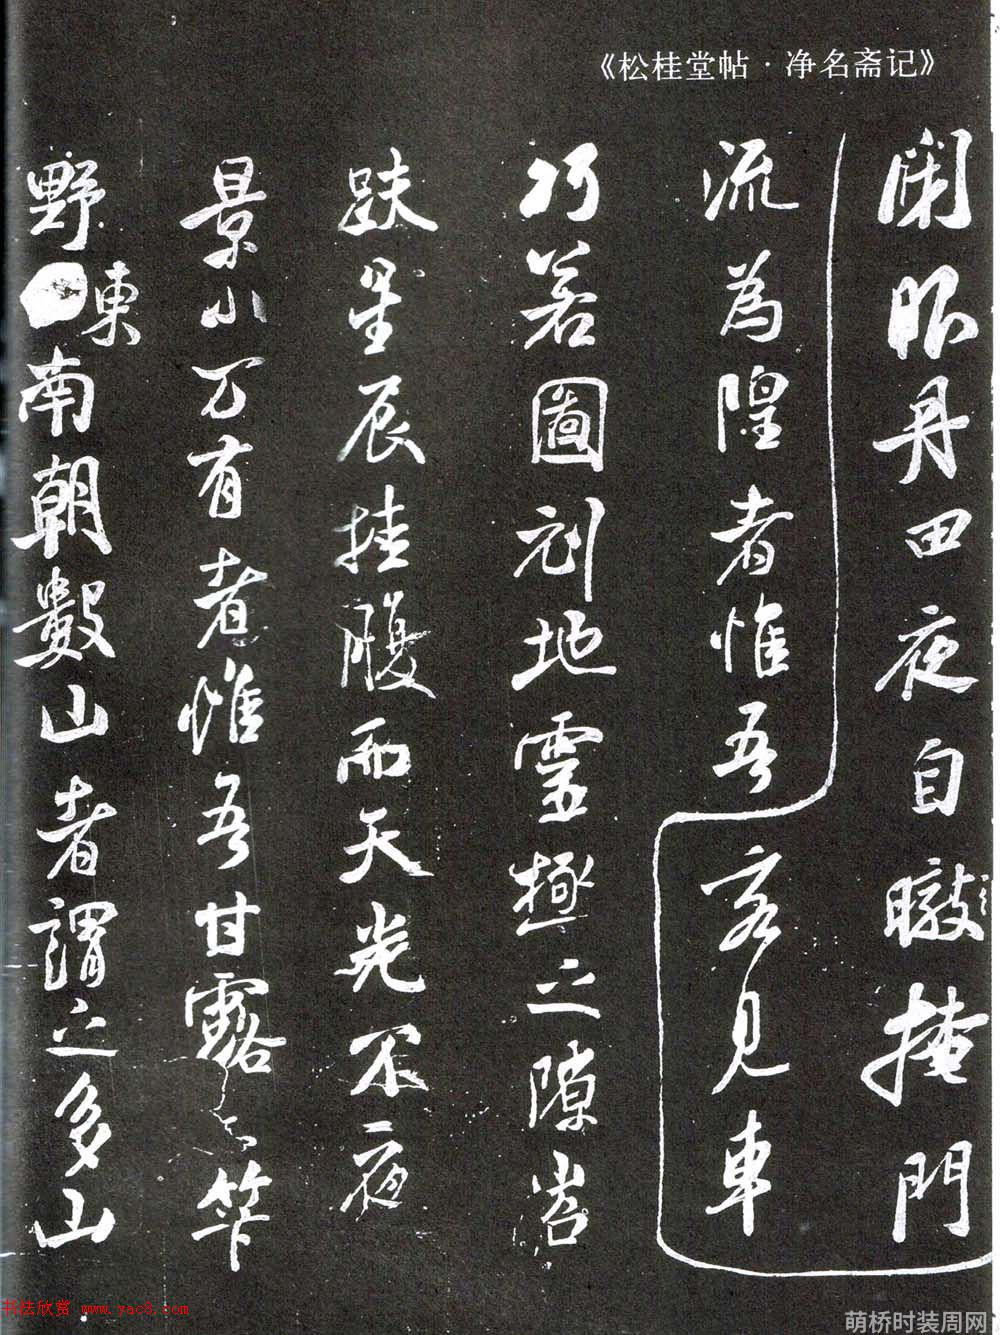 《松桂堂帖·净名斋记》
閑丹田夜自暾掩門
流為隍者惟吾客見車
巧若圖刻地靈極之隙
趺星辰挂腹而天光不夜
景小万有者惟吾甘露
野東南朝數山者謂之多山
书法欣赏 www.yac8.com
萌桥时装周网